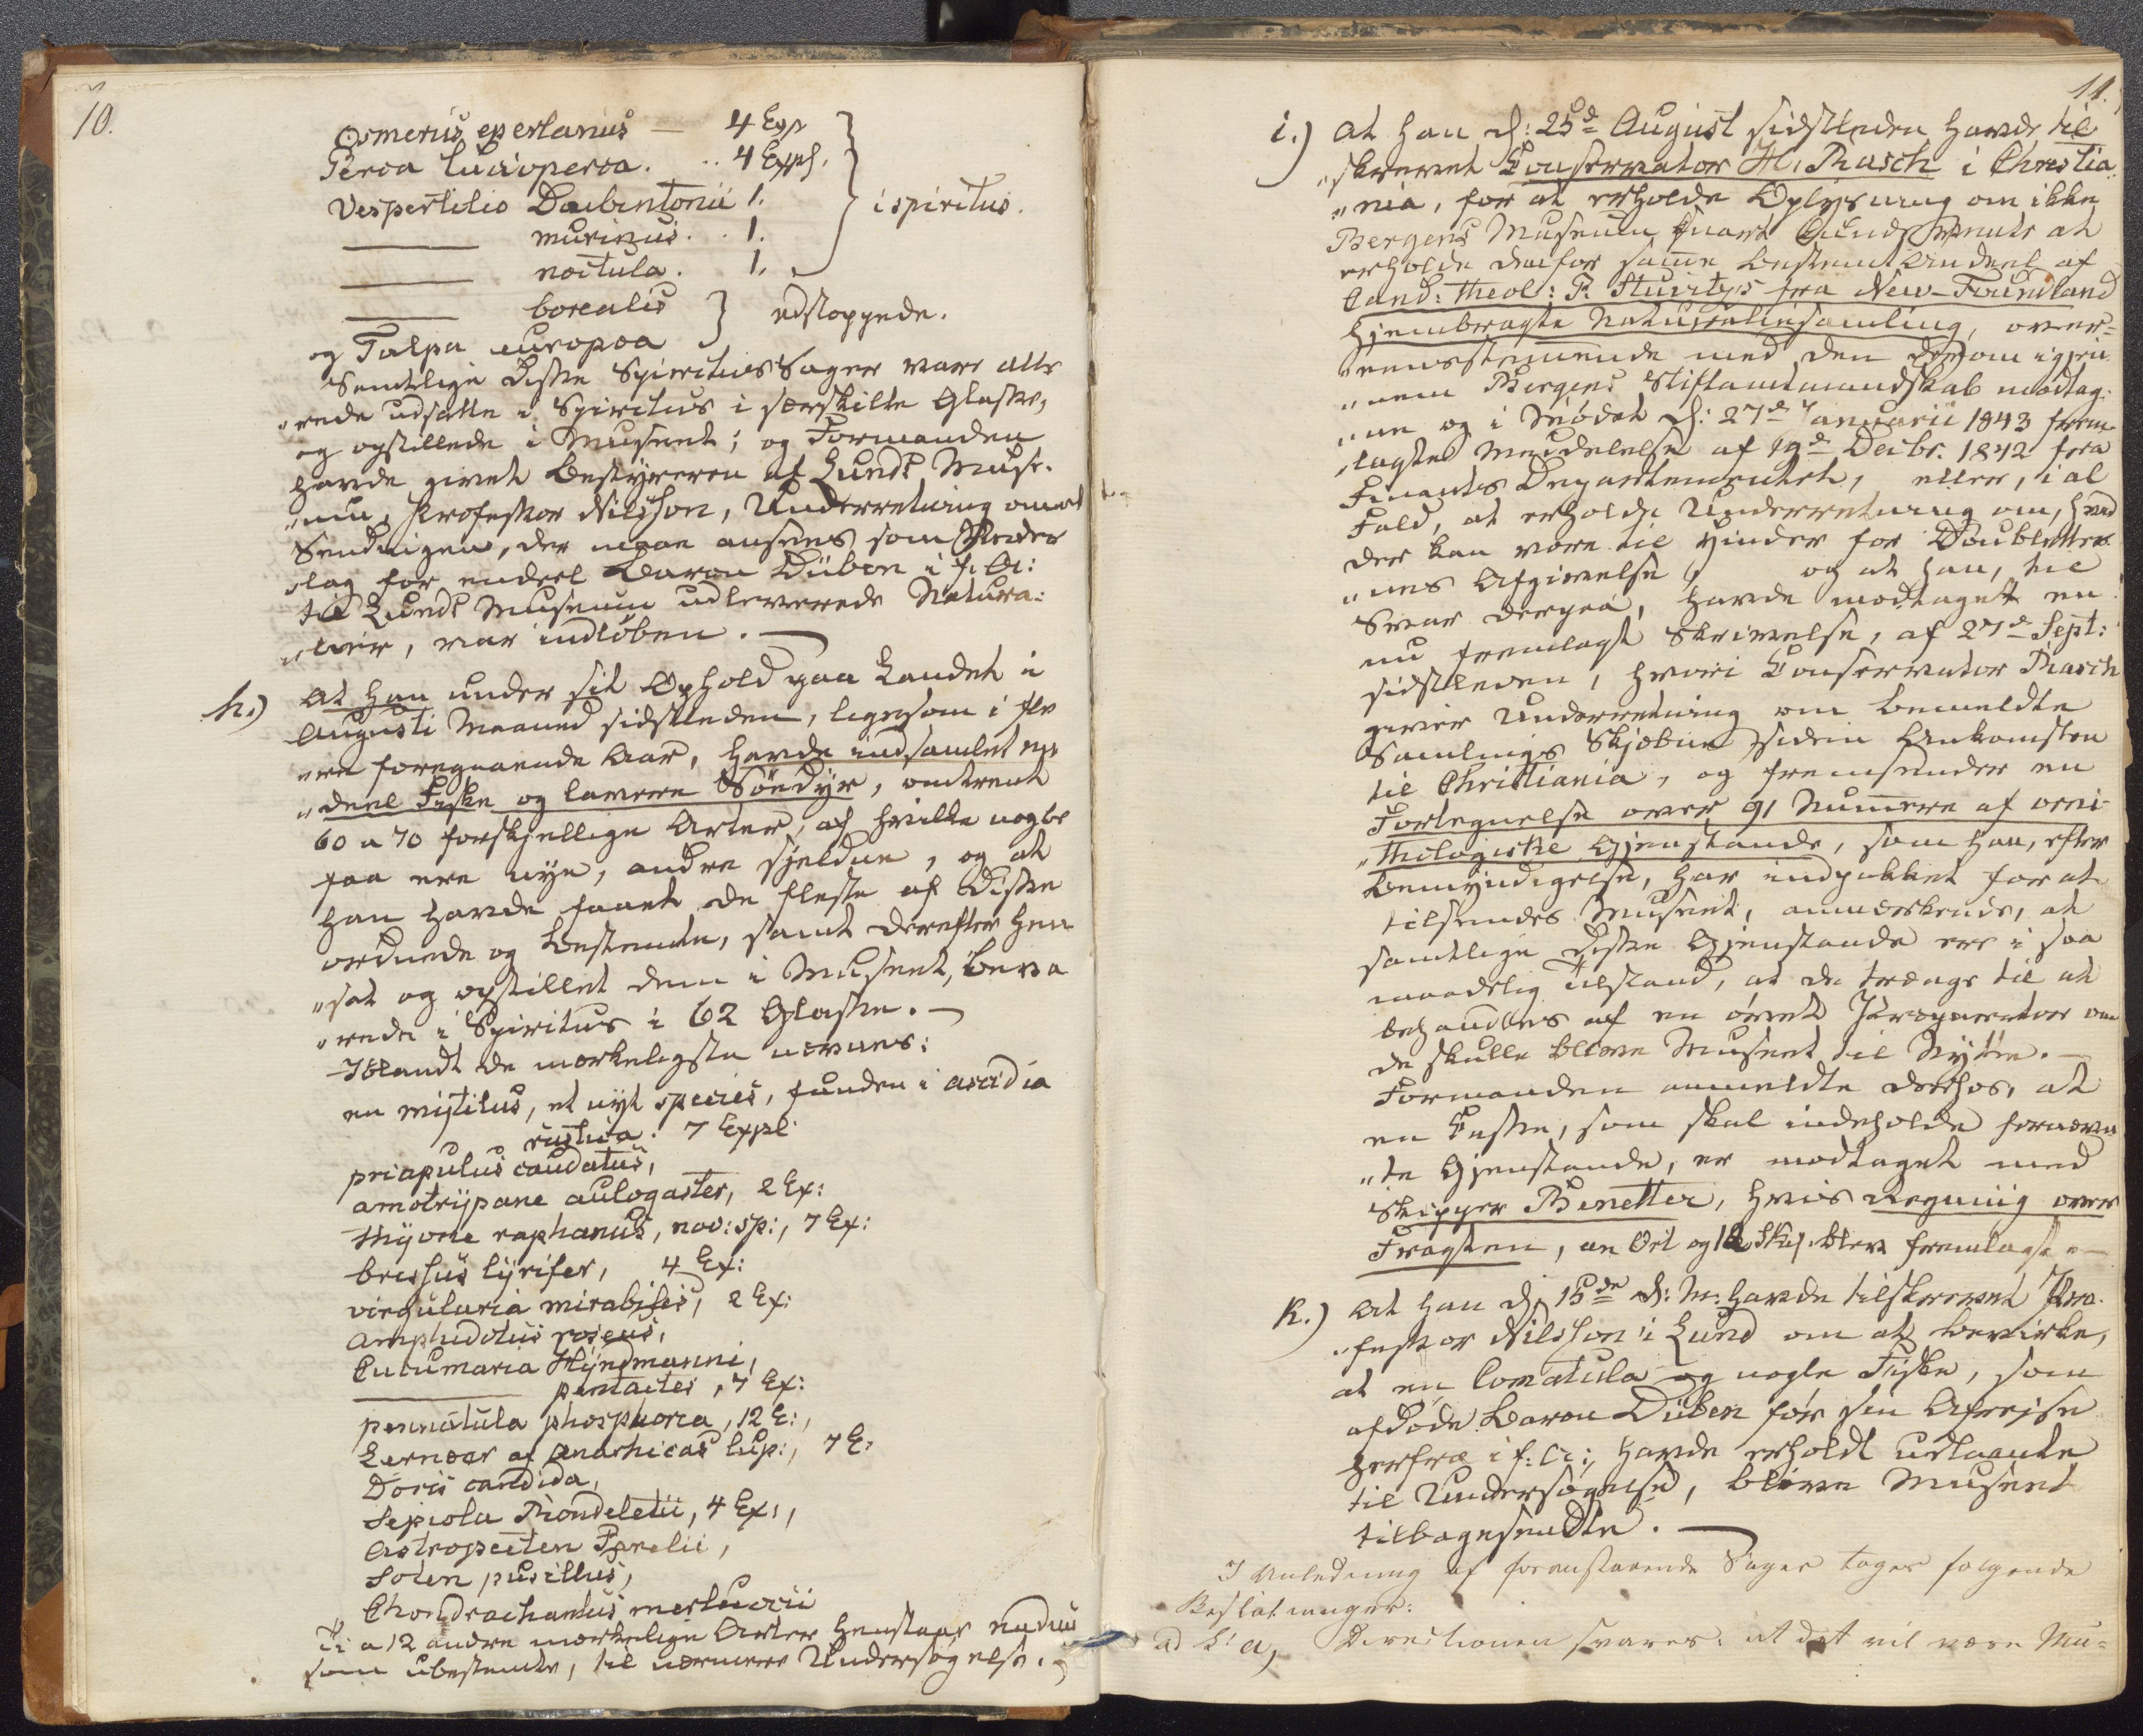 10.
Osmerus eperlanus — 4 Exp
Perca lucioperca. .. 4 Expl.
Vespertilio Daubentonii 1.
i spiritus.
——— murinus . . 1.
——— noctula . 1.
——— borealis
udstoppede.
og Talpa europæa
Samtlige disse Spiritus Sager vare alle
„rede udsatte i Spiritus i særskilte Glasse,
og opstillede i Museet; og Formanden
havde givet Bestyreren af Lunds Muse-
„um, Professor Nilsson, Underretning om at
Sendingen, der maae ansees som Veder
„lag for endeel Baron Düben i f. A:
til Lunds Museum udleverede Natura:
„lier, var indløben. —
h.) At han under sit Ophold paa Landet i
Augusti Maaned sidstleden, ligesom i fle
„re foregaaende Aar, havde indsamlet en
„deel Fiske og lavere Södyr, omtrent
60 a 70 forskjellige Arter, af hvilke nogle
faa ere nye, andre sjeldne, og at
han havde faaet de fleste af disse
ordnede og bestemte, samt derefter hen
„sat og opstillet dem i Museet, beva
„rede i Spiritus i 62 Glasse. —
Iblandt de mærkeligste nævnes:
en mytilus, et nyt species, funden i ascidia
rustica. 7 Expl.
priapulus caudatus,
amotrypane aulogaster, 2 Ex:
thyone raphanus, nov: sp:, 7 Ex:
brissus lyrifer, 4 Ex:
virgularia mirabilis, 2 Ex:
Amphidotus roseus,
Cucumaria Hyndmanni,
——— pentactes, 7 Ex:
pennatula phosphorea, 12 E:,
Lernæer af anarhicas lup:, 7 E:
Doris candida,
Sepiola Rondeletii, 4 Ex:,
Astropecten Parelii,
Solen pusillus,
Chondrachantus merluccii
10 a 12 andre mærkelige Arter henstaar endnu
som ubestemte, til nærmere Undersøgelse.
11.
i.) At han d: 25de August sidstleden havde til
„skrevet Conservator H. Rasch i Christia
„nia, for at erholde Oplysning om ikke
Bergens Museum snart kunde vente at
erholde den for samme bestemt Andeel af
Cand: Theol: P. Stuvitz's fra New-Foundland
hjembragte Naturaliesamling, over=
„eensstemmende med den derom igjen
„nem Bergens Stiftamtmandskab modtag:
„ne og i Mødet d: 27de Januarii 1843 frem-
„lagte Meddelelse af 19de Decbr. 1842 fra
Finants Departementet, eller, i al
Fald, at erholde Underretning om, hvad
der kan være til Hinder for Doubletter-
„nes Afgivelse, og at han, til
Svar derpaa, havde modtaget en
nu fremlagt Skrivelse, af 27de Sept:
sidstleden, hvori Conservator Rasch
giver Underretning om bemeldte
Samlings Skjæbne siden Ankomsten
til Christiania, og fremsender en
Fortegnelse over 91 Numere af orni-
„thologiske Gjenstande, som han, efter
Bemyndigelse, har indpakket for at
tilsendes Museet, anmærkende, at
samtlige disse Gjenstande ere i saa
maadelig Tilstand, at de trænge til at
behandles af en øvet Præparator om
de skulle blive Museet til Nytte. —
Formanden anmeldte derhos, at
en Kasse, som skal indeholde fornævn
„te Gjenstande, er modtaget med
Skipper Benetter, hvis Regning over
Fragten, en Ort og 12 Sk., blev fremlagt —
k.) At han d. 15de d: M: havde tilskrevet Pro-
„fessor Nilsson i Lund om at bevirke,
at en Comatula og nogle Fiske, som
afdøde Baron Düben før sin Afreise
herfra i f: A:, havde erholdt udlaante
til Undersøgelse, bleve Museet
tilbagesendte. —
I Anledning af foranstaaende Sager toges følgende
Beslutninger:
ad L: a, Directionen svarer: at det vil være Mu=